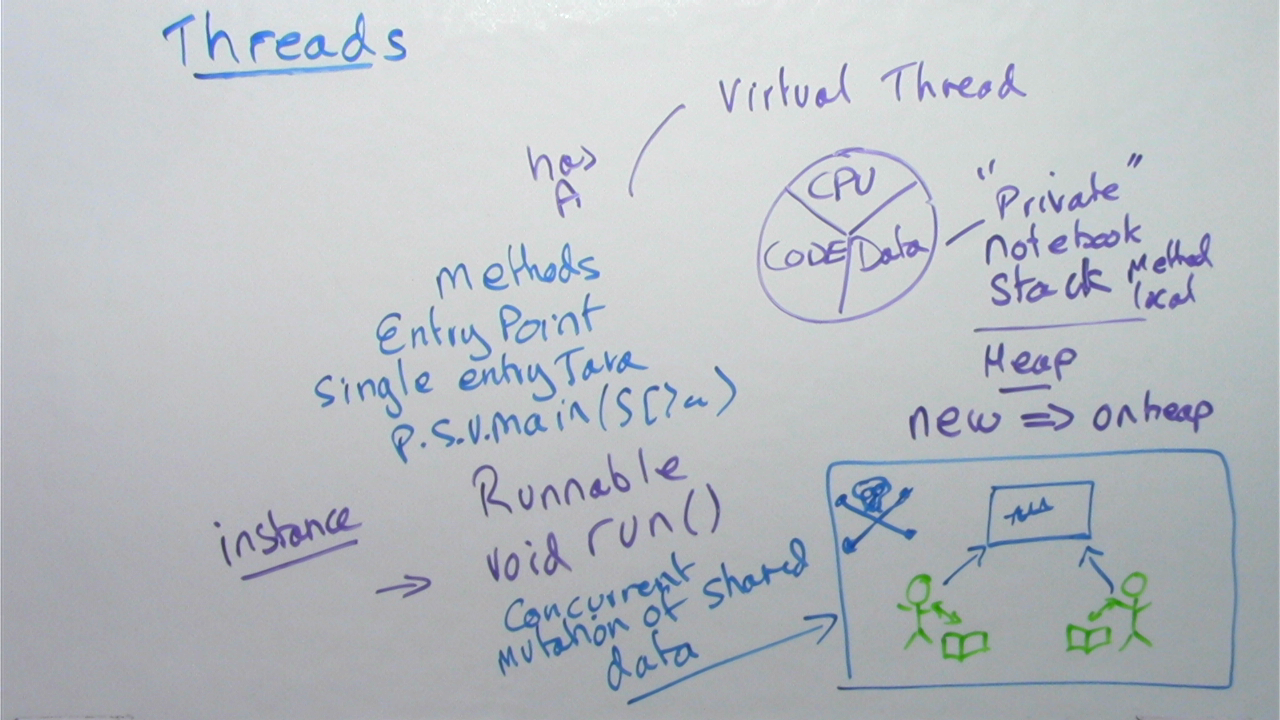 Threads
Virtual Thread
has
A
CPU
CODE
Data
"Private"
notebook
Stack Method
local
Heap
new => onheap
methods
Entry Point
Single entry Java
P.S.V.main(S[]a)
Runnable
void run()
instance
Concurrent
mutation of shared
data